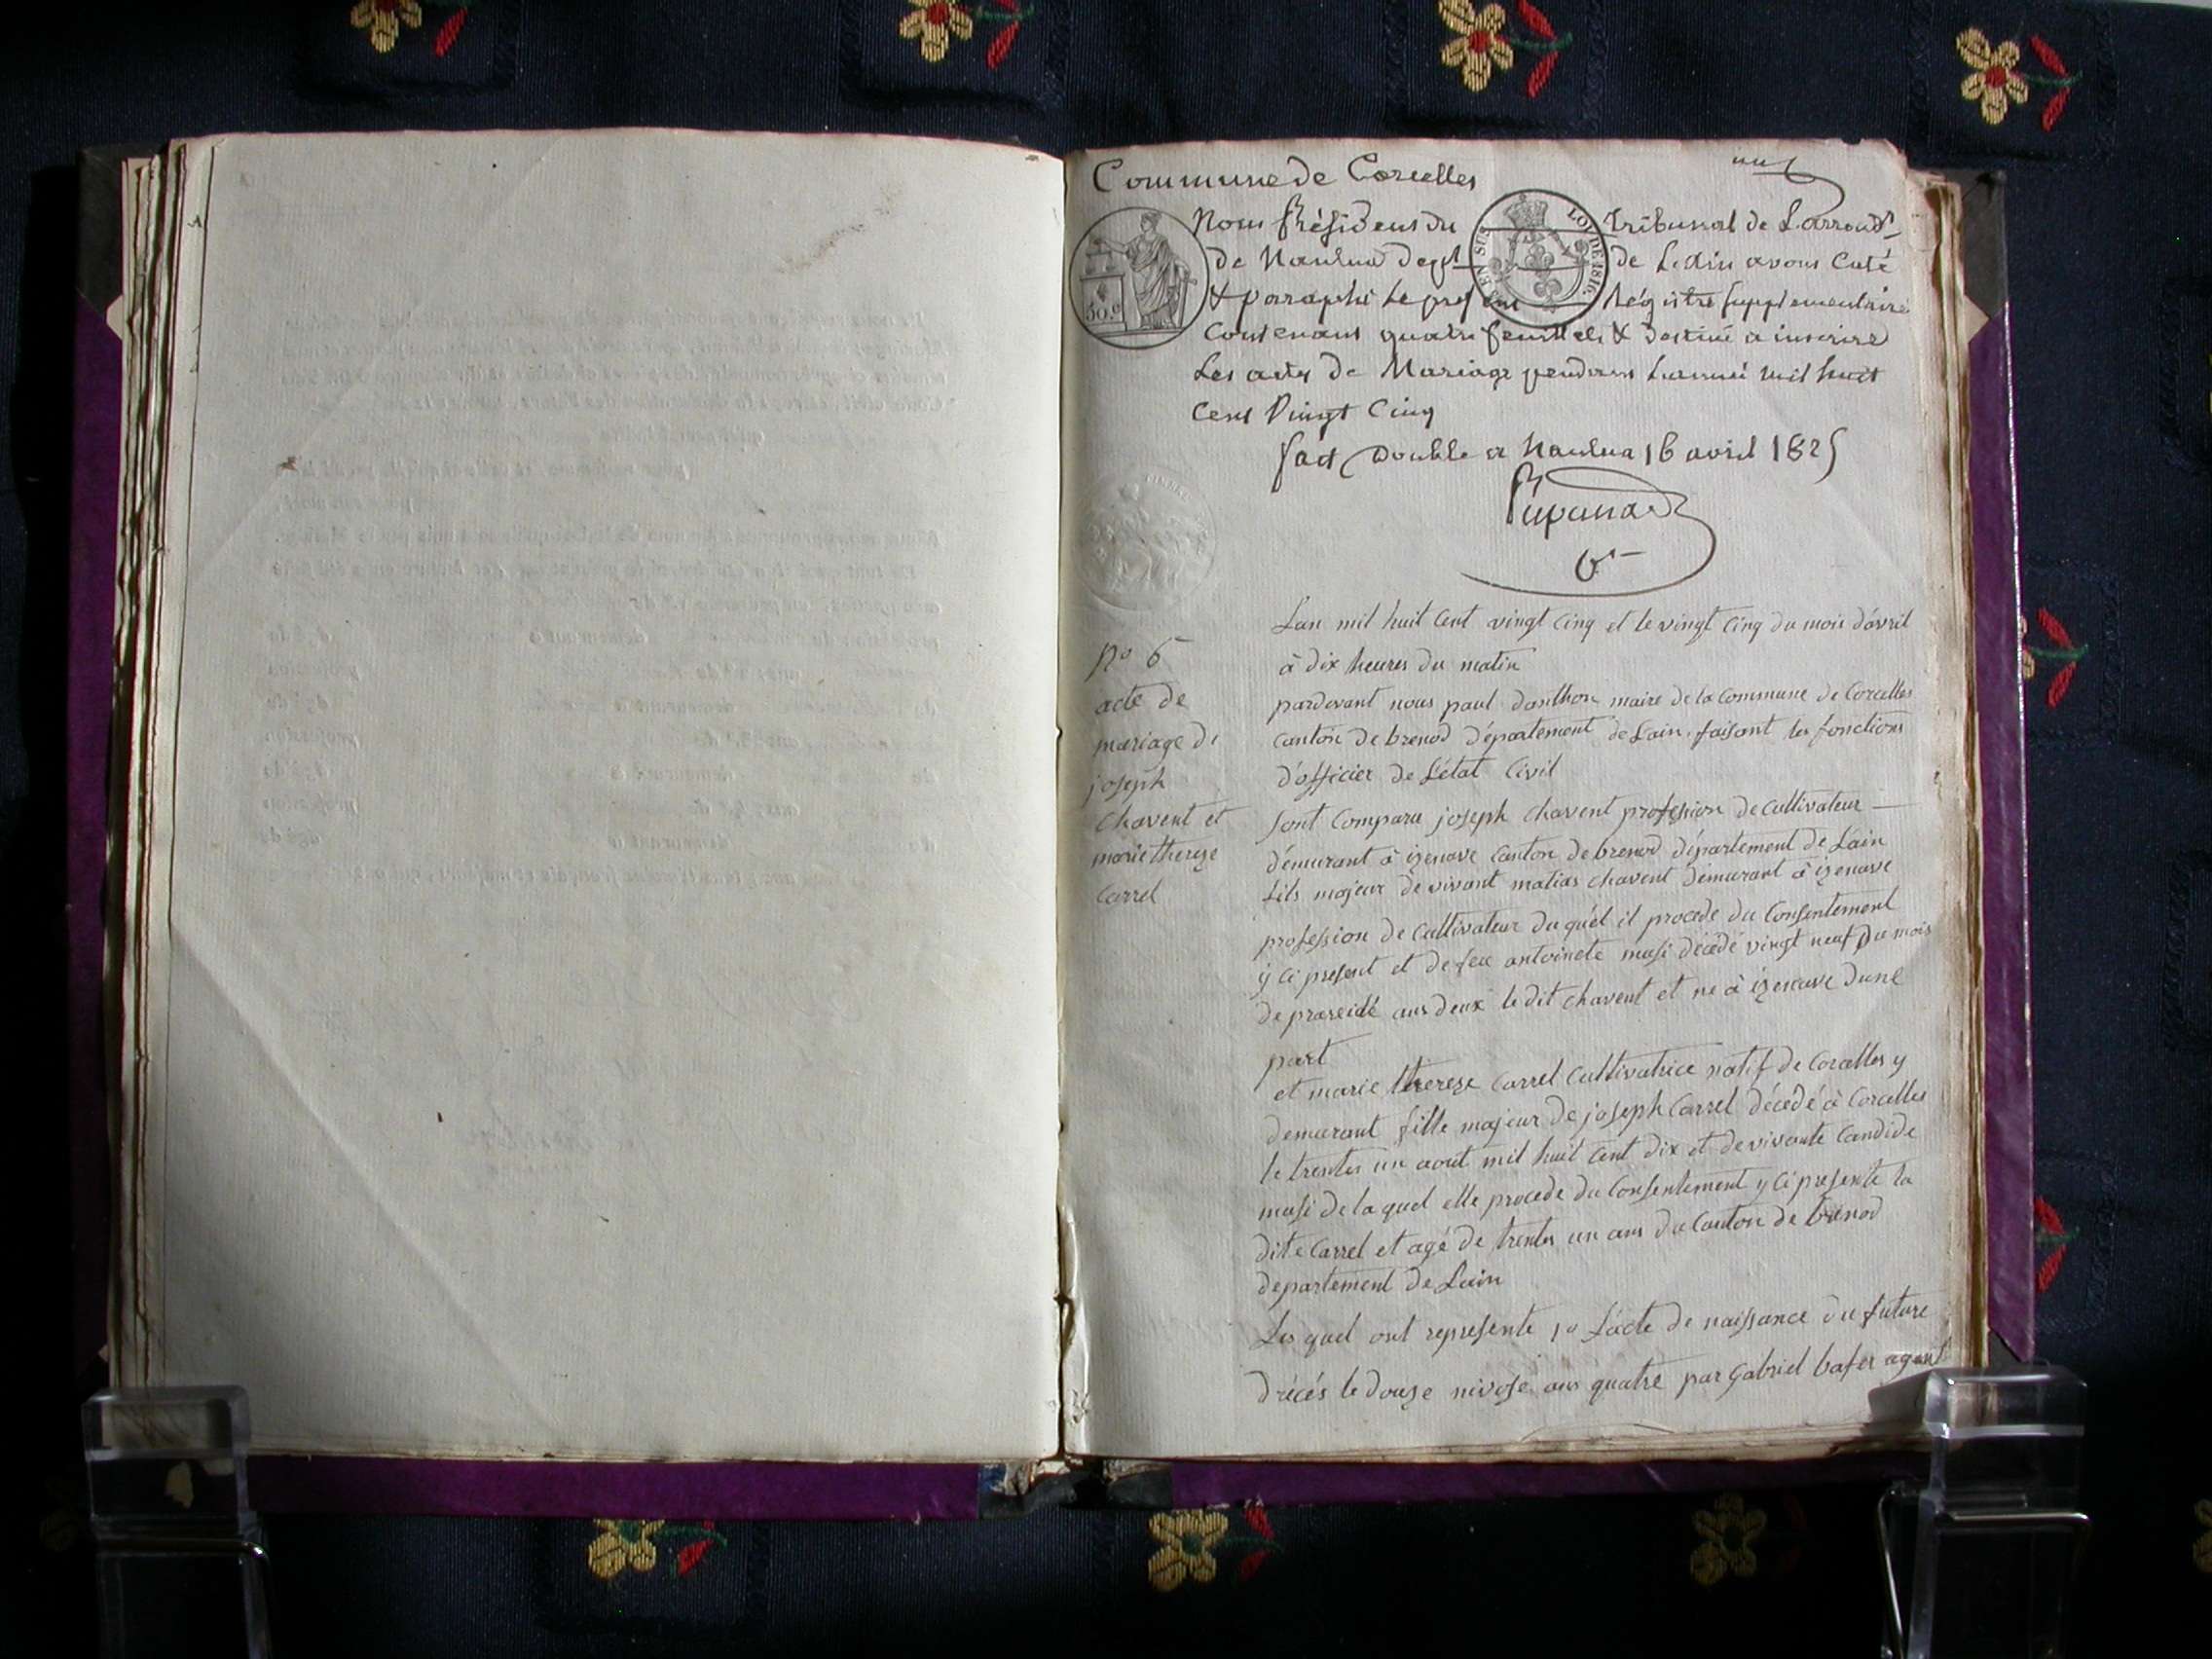 Commune de Corcelles
un
Nous Président du Tribunal de L'arrondt
de Nantua Dept de L'ain avons Coté
& paraphé Le present Régistre Supplementaire
Contenant quatre feuillets & destiné a inscrire
Les actes de Mariage pendant L'année mil huit
Cent Vingt Cinq
fait Double a Nantua 16 avril 1825
50.c
EN SUS
LOI DE 1816.
No 6
acte de
mariage de
joseph
Chavent et
marie thereze
Carrel
Lan mil huit Cent vingt Cinq et le vingt Cinq du mois d'avril
à dix heures du matin
pardevant nous paul danthon maire de la Commune de Corcelles
Canton de brenod département de Lain, faisant les fonctions
d'officier de L'état Civil
Sont Comparu joseph Chavent profession de Cultivateur
démurant à izenave Canton de brenod département de Lain
fils majeur de vivant matias Chavent demurant à izenave
profession de Cultivateur du quél il procede du Consentement
y Ci present et de feue antoinete musi décédé vingt neuf du mois
de ans deux le dit Chavent et né à izenave dune
part
et marie thereze Carrel Cultivatrice natif de Corcelles y
demurant fille majeur de joseph Carrel décédé à Corcelles
le trentes un aout mil huit Cent dix et de vivante Candide
musi de la quel elle procede du Consentement y Ci presente la
dite Carrel et agé de trentes un ans du Canton de brenod
departement de Lain
Les quel ont represente 1o L'acte de naissance du future
le douze nivose ans quatre par Gabriel agent